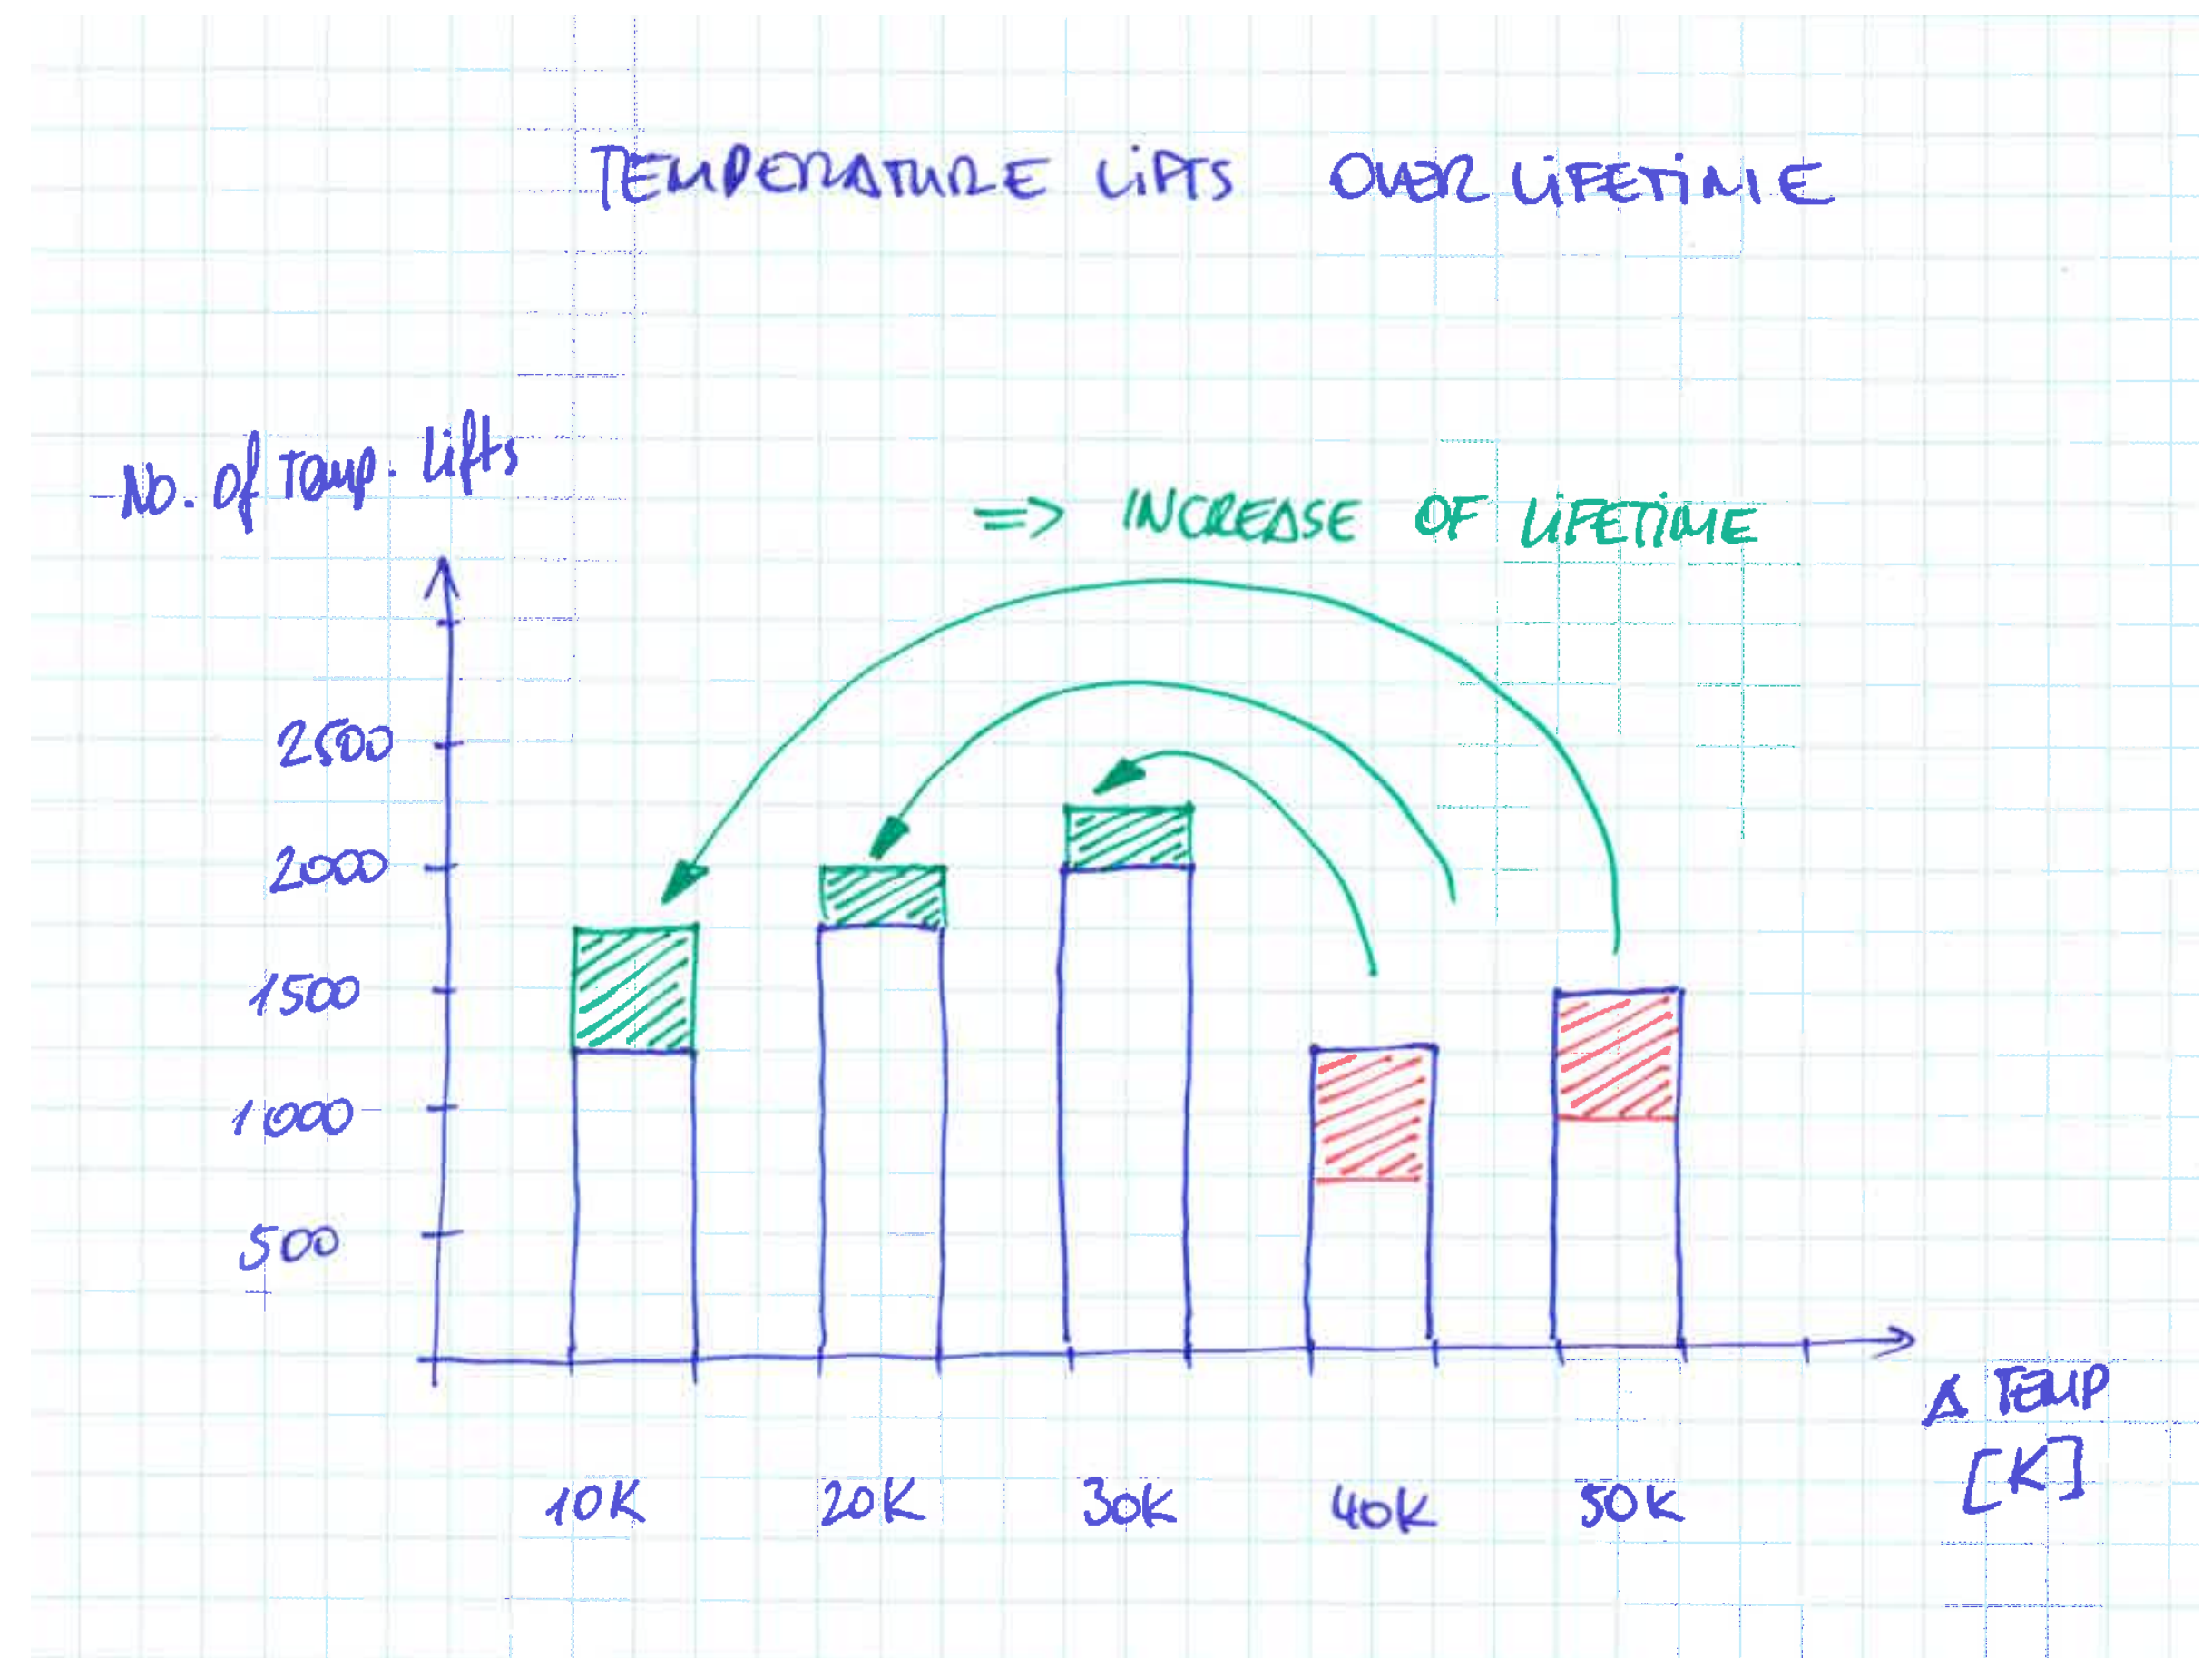 TEMPERATURE LiFTS OVER LiFETiME
No. of Temp. Lifts
=> INCREASE OF LiFETiME
2500
2000
1500
1000
500
Δ TEMP
[K]
10K 20K 30K 40K 50K